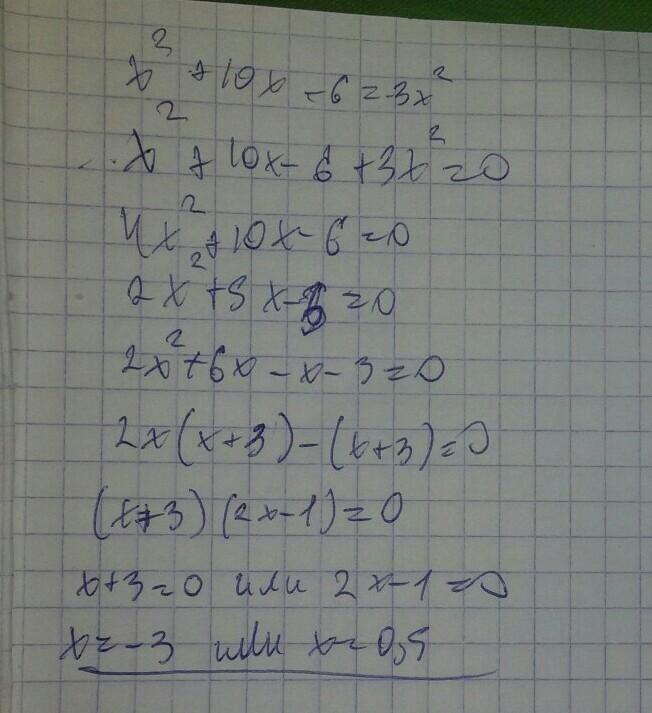 x³ + 10x - 6 = -3x²
x² + 10x - 6 + 3x² = 0
4x² + 10x - 6 = 0
2x² + 5x - 3 = 0
2x² + 6x - x - 3 = 0
2x(x+3) - (x+3) = 0
(x+3)(2x-1) = 0
x+3=0 или 2x-1=0
x=-3 или x=0,5